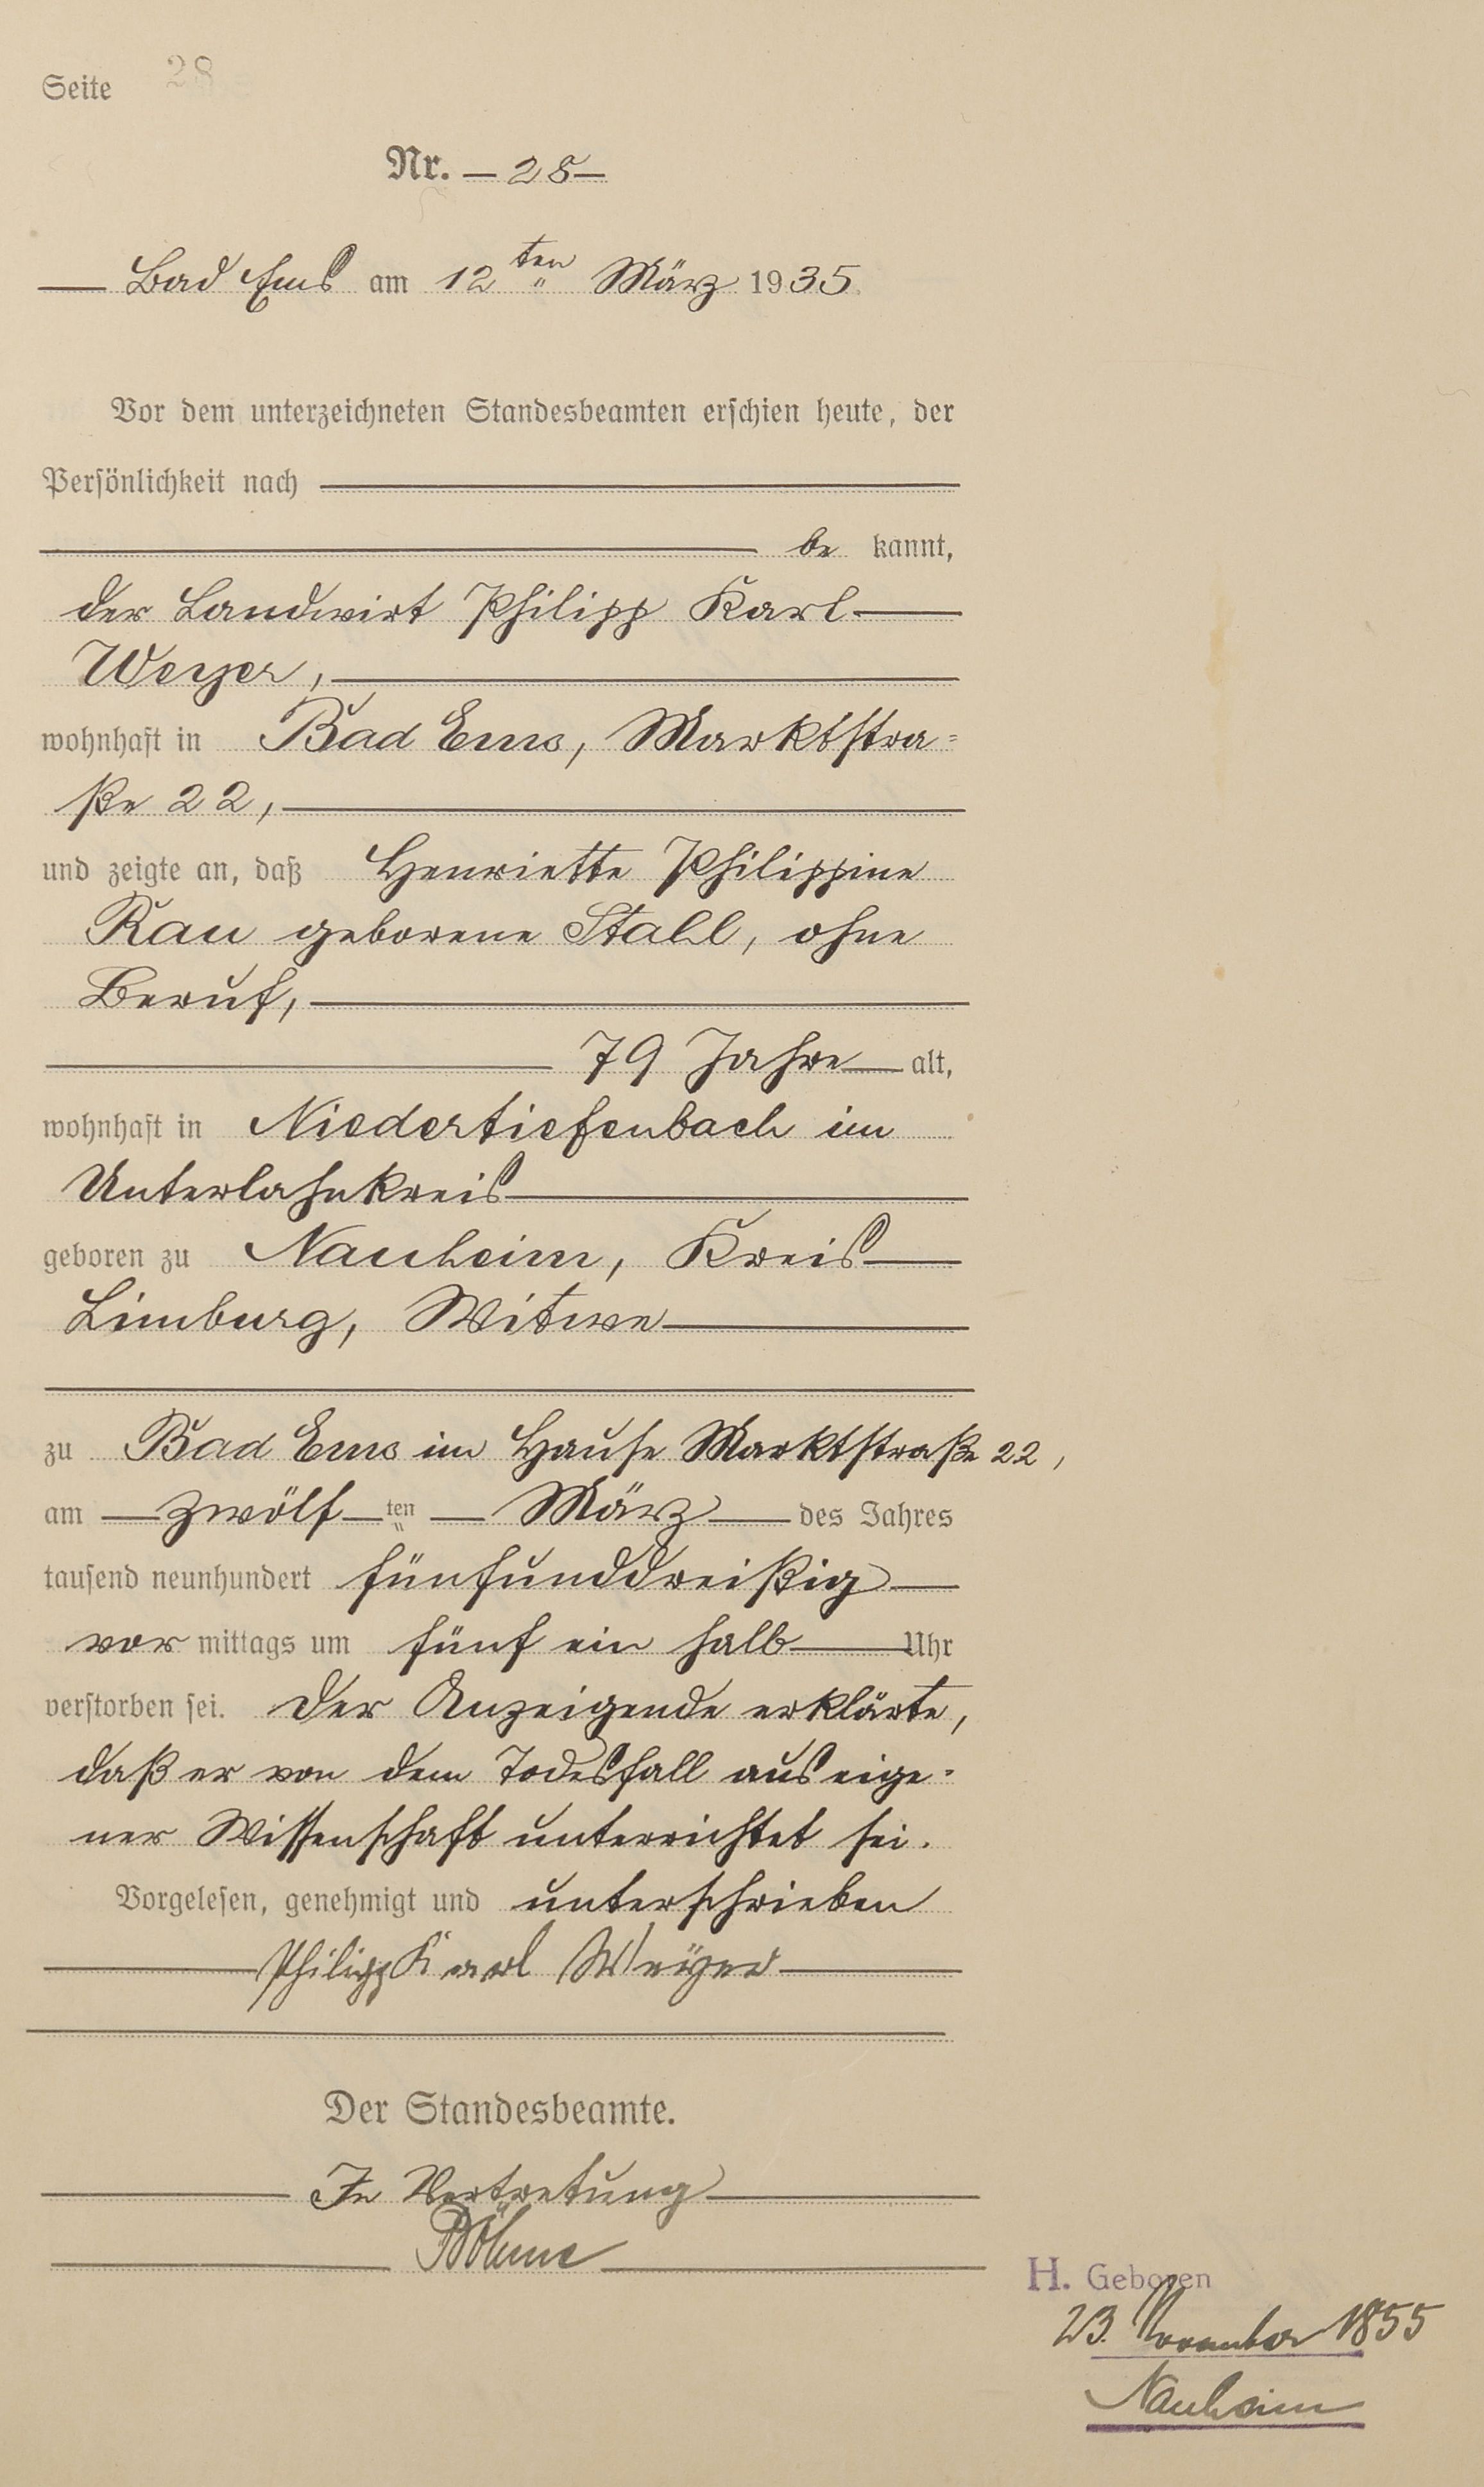 Seite 28
Nr. — 28 —
— Bad Ems am 12ten März 1935.
Vor dem unterzeichneten Standesbeamten erschien heute, der
Persönlichkeit nach
be kannt,
der Landwirt Philipp Karl
Weyer,
wohnhaft in Bad Ems, Marktstra=
ße 22,
und zeigte an, daß Henriette Philippine
Rau geborene Stahl, ohne
Beruf,
79 Jahre alt,
wohnhaft in Niedertiefenbach im
Unterlahnkreis
geboren zu Nauheim, Kreis
Limburg, Witwe
zu Bad Ems im Hause Marktstraße 22,
am — zwölf — ten — März — des Jahres
tausend neunhundert fünfunddreißig
vor mittags um fünf ein halb Uhr
verstorben sei. Der Anzeigende erklärte,
daß er von dem Todesfall aus eige-
ner Wissenschaft unterrichtet sei.
Vorgelesen, genehmigt und unterschrieben
Philipp Karl Weyer
Der Standesbeamte.
In Vertretung
Böhme
H. Geboren
23. November 1855
Nauheim